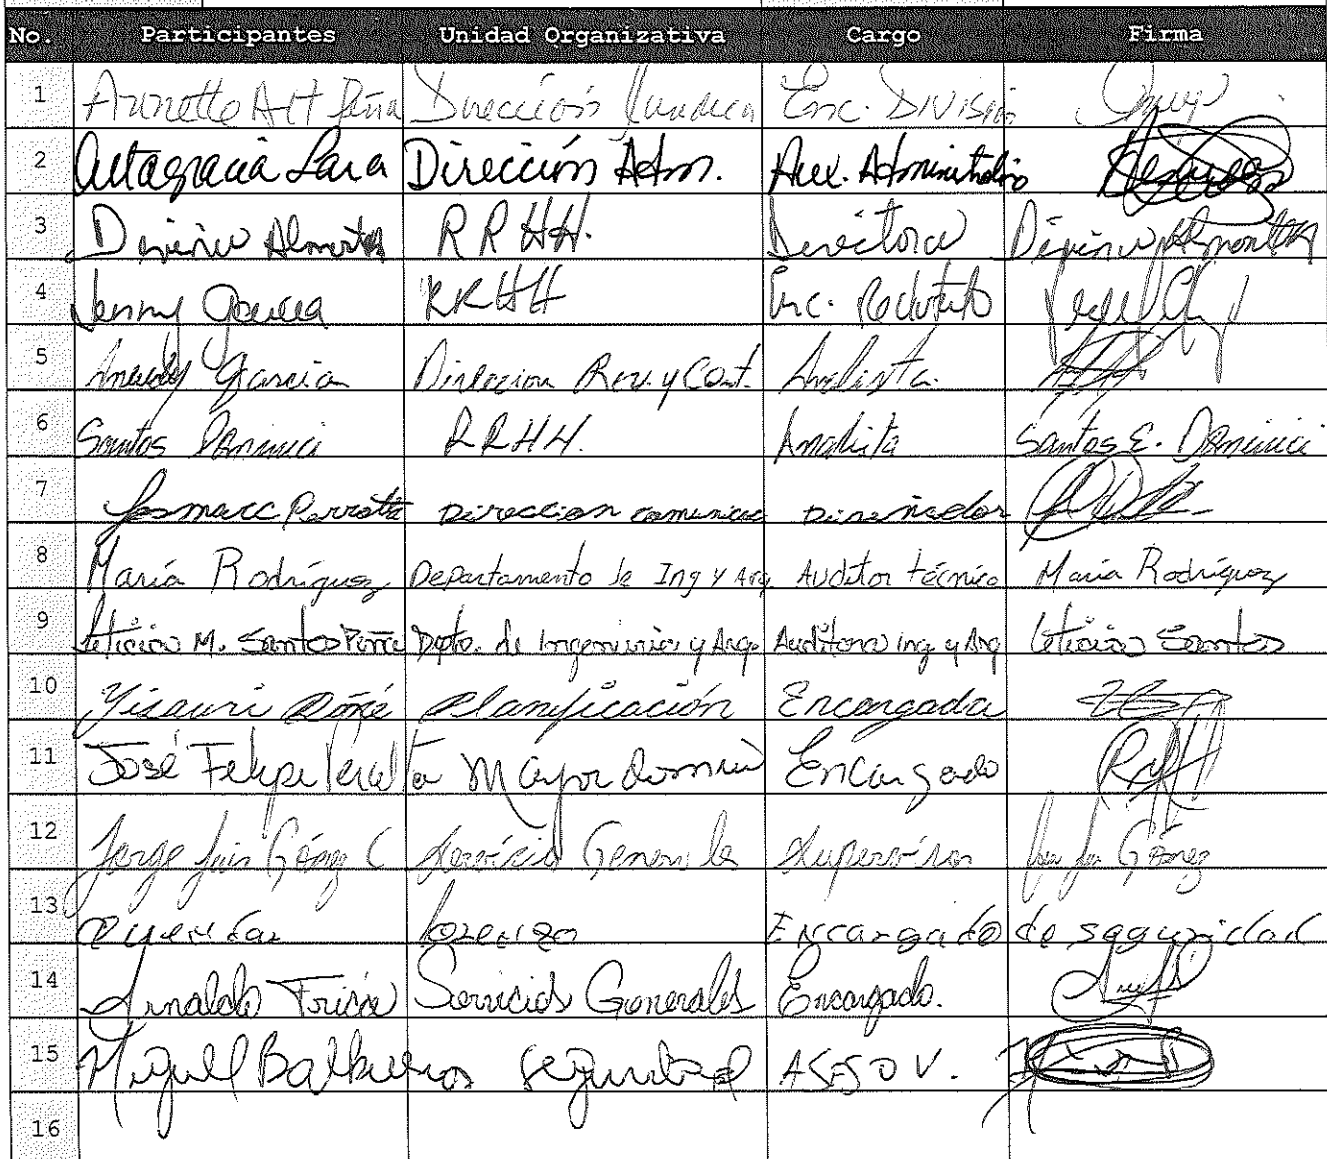 No. Participantes Unidad Organizativa Cargo Firma
1 Peña Dirección Juridica Enc. División
2 Altagracia Lara Dirección Adm. Aux. Administrativo
3 Almonte RRHH. Directora Almonte
4 Jenny RRHH Enc.
5 Garcia Direccion Rev. y Cont. Analista.
6 Santos Dominici RRHH. Analista Santos E. Dominici
7 Direccion Diseñador
8 María Rodríguez Departamento de Ing y Arq Auditor técnico María Rodríguez
9 Leticia M. Santos Peña Dpto. de Ingenieria y Arq. Auditora Ing y Arq Leticia Santos
10 Yisauri Planificación Encargada
11 José Felipe Peralta Mayordomia Encargado
12 Jorge Luis Gómez C Servicio Generale Supervisor Gómez
13 Lorenzo Encargado de seguridad
14 Arnaldo Servicios Generales Encargado.
15 Miguel Balbuena seguridad ASESOR.
16